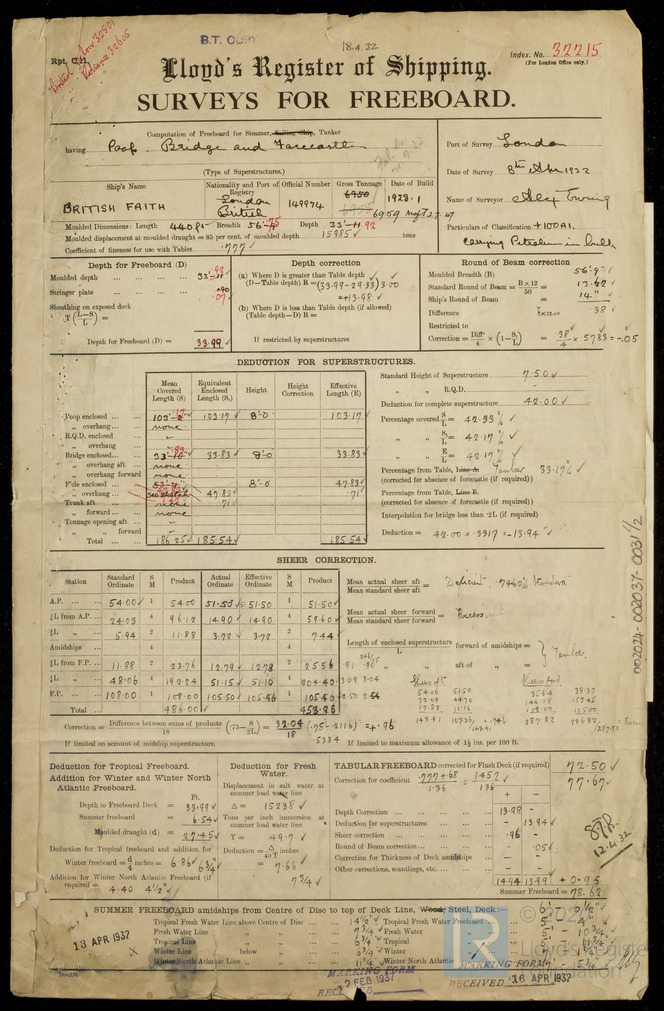 B.T. COPY
18.4.32
Rpt. C.11.
Index. No. 32215
(For London Office only.)
Lloyd's Register of Shipping.
SURVEYS FOR FREEBOARD.
Computation of Freeboard for Steamer, Sailing Ship, Tanker
having Poop. Bridge and Forecastle
(Type of Superstructures.)
Port of Survey London
Date of Survey 8th Apr 1932
Name of Surveyor Alex Ewing
Particulars of Classification +100A1.
Carrying Petroleum in bulk
Ship's Name
Nationality and Port of Registry
Official Number
Gross Tonnage
Date of Build
BRITISH FAITH
London
British
149974
6950
6959
1928.1
Moulded Dimensions: Length 440 Breadth 56'. Depth 33'-11
Moulded displacement at moulded draught = 85 per cent. of moulded depth 15985 tons
Coefficient of fineness for use with Tables .777
Depth for Freeboard (D)
Moulded depth ... ...
Stringer plate ... ...
Sheathing on exposed deck
T (L-S / L) =
Depth for Freeboard (D) = 33.99
Depth correction
(a) Where D is greater than Table depth
(D—Table depth) R = (33.99 - 29.33) 3.00
= +13.98
(b) Where D is less than Table depth (if allowed)
(Table depth—D) R =
If restricted by superstructures
Round of Beam correction
Moulded Breadth (B)
Standard Round of Beam = B×12 / 50 = 13.62
Ship's Round of Beam = 14"
Difference Excess .38
Restricted to
Correction = Diff / 4 × (1 - S₁/L) = .38 / 4 × .5783 = -.05
DEDUCTION FOR SUPERSTRUCTURES.
Mean Covered Length (S)
Equivalent Enclosed Length (S₁)
Height
Height Correction
Effective Length (E)
Poop enclosed ... ... 103.17 8'.0 103.17
„ overhang ... ... none
R.Q.D. enclosed -
„ overhang -
Bridge enclosed ... ... 33.83 8'.0 33.83
„ overhang aft ... none
„ overhang forward none
F'cle enclosed ... ... 47.83 8'.0 47.83
„ overhang ... ... .71 .71
Trunk aft ... ... none
„ forward ... ... none
Tonnage opening aft ... -
„ „ forward -
Total ... ... 186.25 185.54 185.54
Standard Height of Superstructure 7.50
„ „ R.Q.D. -
Deduction for complete superstructure 42.00
Percentage covered S/L = 42.33%
„ „ S₁/L = 42.17%
„ „ E/L = 42.17%
Percentage from Table, Line A. Tanker 33.17%
(corrected for absence of forecastle (if required))
Percentage from Table, Line B.
(corrected for absence of forecastle (if required))
Interpolation for bridge less than ·2L (if required)
Deduction = 42.00 × .3317 = -13.94"
SHEER CORRECTION.
Station
Standard Ordinate
S M
Product
Actual Ordinate
Effective Ordinate
S M
Product
A.P. ... ... 54.00 1 54.00 51.50 51.50 1 51.50
⅙L from A.P. ... 24.03 4 96.12 14.90 14.90 4 59.60
⅓L „ ... 5.94 2 11.88 3.72 3.72 2 7.44
Amidships ... 4 4
⅓L from F.P. ... 11.88 2 23.76 12.79 12.78 2 25.56
⅙L „ ... 48.06 4 192.24 51.15 51.10 4 204.40
F.P. ... ... 108.00 1 108.00 105.50 105.50 1 105.50
Total ... ... 486.00 453.96
Mean actual sheer aft / Mean standard sheer aft = Deficient. 74.60% Standard
Mean actual sheer forward / Mean standard sheer forward = Excess
Length of enclosed superstructure / L forward of amidships =
„ aft of „ = } Tanker.
Sheer aft
Sheer fwd
Correction = Difference between sums of products / 18 (·75 - S/2L) = 32.04 / 18 (.75 - .2116) = +.96
.5384
If limited on account of midship superstructure.
If limited to maximum allowance of 1½ ins. per 100 ft.
Deduction for Tropical Freeboard.
Addition for Winter and Winter North
Atlantic Freeboard.
Ft.
Depth to Freeboard Deck = 33.99
Summer freeboard = 6.54
Moulded draught (d) = 27.45
Deduction for Tropical freeboard and addition for
Winter freeboard = d/4 inches = 6.86 6¾"
Addition for Winter North Atlantic Freeboard (if
required) = 4.40 4½"
Deduction for Fresh Water.
Displacement in salt water at
summer load water line
Δ = 15238
Tons per inch immersion at
summer load water line
T = 49.7
Deduction = Δ / 40T inches
= 7.66
7¾"
TABULAR FREEBOARD corrected for Flush Deck (if required) 72.50
Correction for coefficient .777+.68 / 1.36 = 1.457 / 1.36 77.67
+ -
Depth Correction ... ... 13.98 -
Deduction for superstructures ... - 13.94
Sheer correction ... ... .96 -
Round of Beam correction ... - .05
Correction for Thickness of Deck amidships - -
Other corrections, scantlings, etc. ... - -
14.94 13.99 + 0.95
Summer Freeboard = 78.62
12.4.32
SUMMER FREEBOARD amidships from Centre of Disc to top of Deck Line, Wood, Steel, Deck:—
Tropical Fresh Water Line above Centre of Disc ... 14½"
Fresh Water Line „ „ ... 7¾"
Tropical Line „ „ ... 6¾"
Winter Line below „ ... 6¾"
Winter North Atlantic Line „ „ ... 11¼"
Tropical Fresh Water Freeboard
Fresh Water „
Tropical „
Winter „
Winter North Atlantic „
13 APR 1932
MARKING FORM
RECEIVED
MARKING FORM
RECEIVED 16 APR 1932
002024-002037-0031 1/2
Lloyd's Register
Foundation